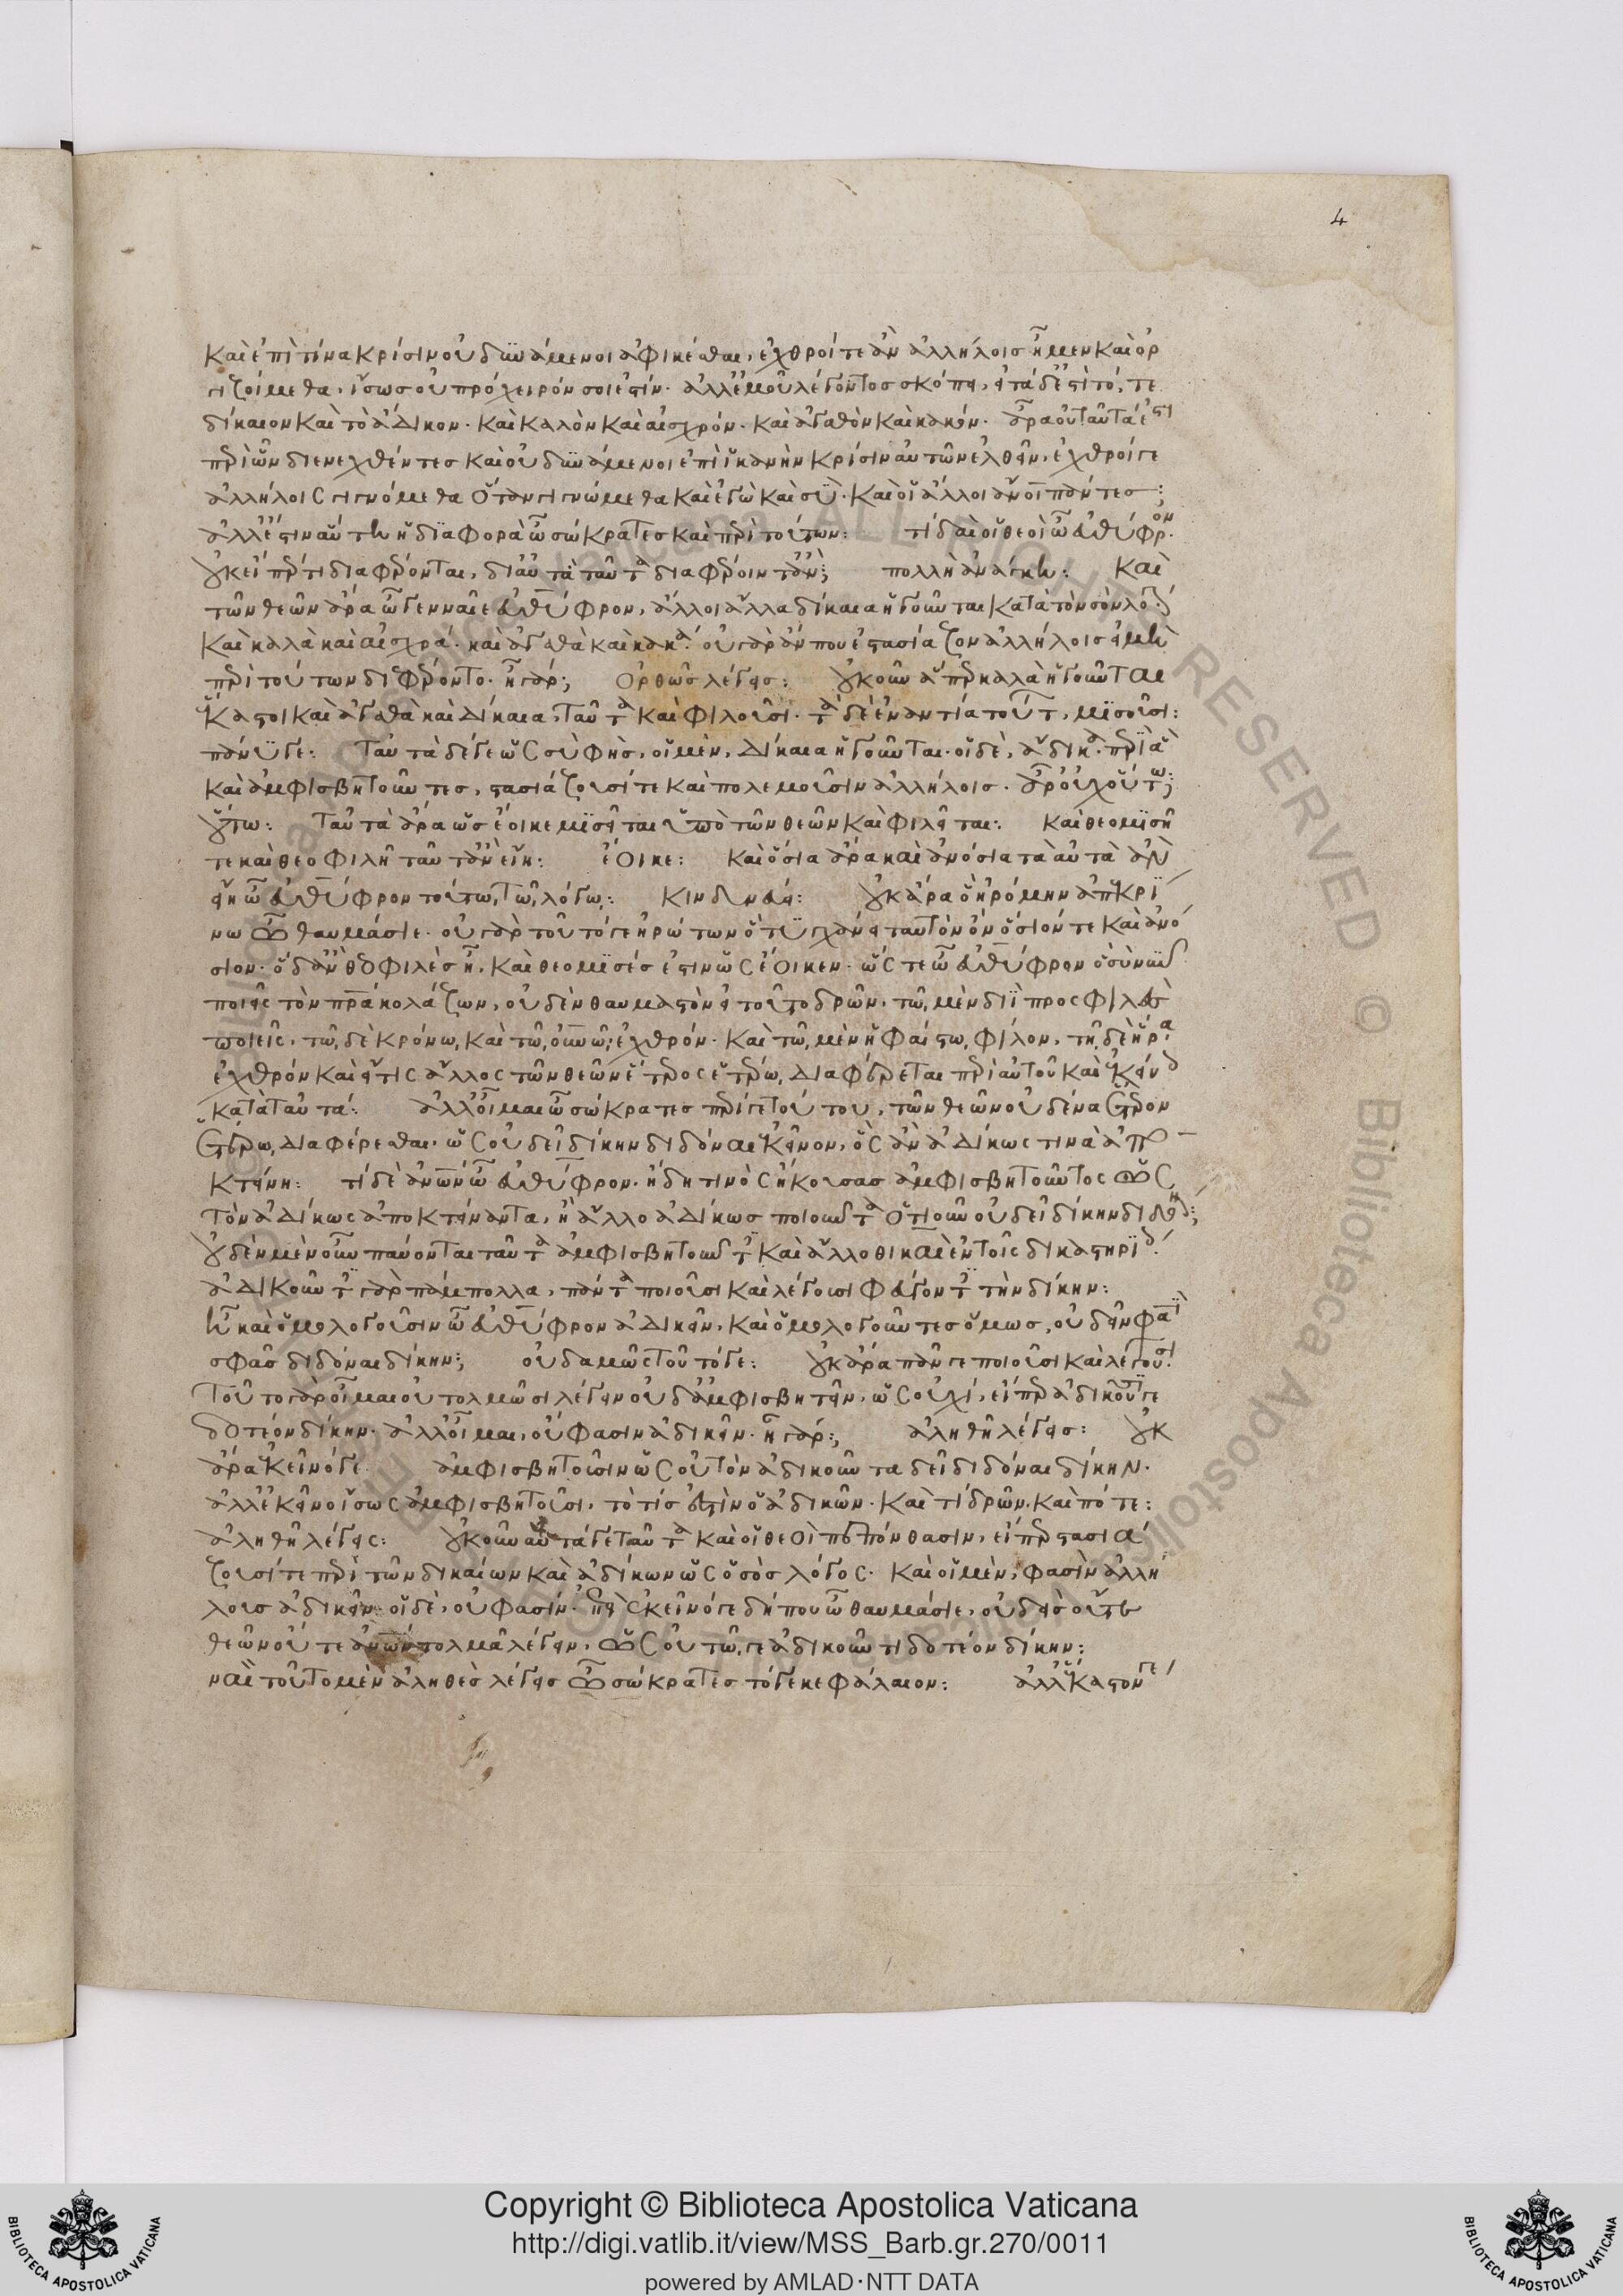 4
καὶ ἐπὶ τίνα κρίσιν οὐ δυνάμενοι ἀφικέσθαι, ἐχθροί τε ἂν ἀλλήλοις ἦμεν καὶ ὀρ
γιζοίμεθα, ἴσως οὐ πρόχειρόν σοι ἐστίν. ἀλλ' ἐμοῦ λέγοντος σκόπει, εἰ τάδ' ἐστὶ τό, τε
δίκαιον καὶ τὸ ἄδικον. καὶ καλὸν καὶ αἰσχρόν. καὶ ἀγαθὸν καὶ κακόν. ἆρα οὐ ταῦτά ἐστι
περὶ ὧν διενεχθέντες καὶ οὐ δυνάμενοι ἐπὶ ἱκανὴν κρίσιν αὐτῶν ἐλθεῖν, ἐχθροί γε
ἀλλήλοις γιγνόμεθα ὅταν γιγνώμεθα καὶ ἐγὼ καὶ σὺ. καὶ οἱ ἄλλοι ἄνοι πάντες;
ἀλλ' ἔστιν αὕτη ἡ διαφορὰ ὦ σώκρατες καὶ περὶ τούτων: τί δαὶ οἱ θεοὶ ὦ εὐθύφρον.
οὐκ εἴπερ τι διαφέρονται, δι' αὐτὰ ταῦτα διαφέροιντ' ἄν; πολλὴ ἀνάγκη: καὶ
τῶν θεῶν ἄρα ὦ γενναῖε εὐθύφρον, ἄλλοι ἄλλα δίκαια ἡγοῦνται κατὰ τὸν σὸν λόγον
καὶ καλὰ καὶ αἰσχρά. καὶ ἀγαθὰ καὶ κακά. οὐ γὰρ ἄν που ἐστασίαζον ἀλλήλοις εἰ μὴ
περὶ τούτων διεφέροντο. ἦ γάρ; ὀρθῶς λέγεις: οὐκοῦν ἅπερ καλὰ ἡγοῦνται
ἕκαστοι καὶ ἀγαθὰ καὶ δίκαια, ταῦτα καὶ φιλοῦσι. τὰ δὲ ἐναντία τούτων, μισοῦσι:
πάνυ γε: ταὐτὰ δέ γε ὡς σὺ φὴς, οἱ μὲν, δίκαια ἡγοῦνται. οἱ δὲ, ἄδικα. περὶ ἃ
καὶ ἀμφισβητοῦντες, στασιάζουσί τε καὶ πολεμοῦσιν ἀλλήλοις. ἆρ' οὐχ οὕτω;
οὕτω: ταὐτὰ ἄρα ὡς ἔοικε μισεῖται ὑπὸ τῶν θεῶν καὶ φιλεῖται: καὶ θεομισῆ
τε καὶ θεοφιλῆ ταῦτ' ἂν εἴη: ἔοικε: καὶ ὅσια ἄρα καὶ ἀνόσια τὰ αὐτὰ ἂν
εἴη ὦ εὐθύφρον τούτῳ τῷ λόγῳ: κινδυνεύει: οὐκ ἄρα ὃ ἠρόμην ἀπεκρί
νω ὦ θαυμάσιε. οὐ γὰρ τοῦτό γε ἠρώτων ὃ τυγχάνει ταυτὸν ὂν ὅσιόν τε καὶ ἀνό
σιον. ὃ δ' ἂν θεοφιλὲς ἦ, καὶ θεομισές ἐστιν ὡς ἔοικεν. ὥστε ὦ εὐθύφρον ὃ σὺ νῦν
ποιεῖς τὸν πρα κολάζων, οὐδὲν θαυμαστὸν εἰ τοῦτο δρῶν, τῷ μὲν διῒ προσφιλὲς
ποιεῖς, τῷ δὲ κρόνῳ καὶ τῷ οὐνῷ, ἐχθρόν. καὶ τῷ μὲν ἡφαίστῳ, φίλον, τῇ δὲ ἥρα
ἐχθρόν καὶ εἴ τις ἄλλος τῶν θεῶν ἕτερος ἑτέρῳ διαφέρεται περὶ αὐτοῦ καὶ ἐκείνοις
κατὰ ταὐτά: ἀλλ' οἶμαι ὦ σώκρατες περί γε τούτου, τῶν θεῶν οὐδένα ἕτερον
ἑτέρῳ διαφέρεσθαι, ὡς οὐ δεῖ δίκην διδόναι ἐκεῖνον, ὃς ἂν ἀδίκως τινὰ ἀπο
κτείνῃ: τί δὲ ἀνων ὦ εὐθύφρον. ἤδη τινὸς ἤκουσας ἀμφισβητοῦντος ὡς
τὸν ἀδίκως ἀποκτείναντα, ἢ ἄλλο ἀδίκως ποιοῦντα ὁτιοῦν οὐ δεῖ δίκην διδόναι;
οὐδὲν μὲν οὖν παύονται ταῦτα ἀμφισβητοῦντες καὶ ἄλλοθι καὶ ἐν τοῖς δικαστηρίοις
ἀδικοῦντες γὰρ πάμπολλα, πάντα ποιοῦσι καὶ λέγουσι φεύγοντες τὴν δίκην:
ἦ καὶ ὁμολογοῦσιν ὦ εὐθύφρον ἀδικεῖν, καὶ ὁμολογοῦντες ὅμως, οὐ δεῖν φασὶ
σφᾶς διδόναι δίκην; οὐδαμῶς τοῦτό γε: οὐκ ἄρα πᾶν γε ποιοῦσι καὶ λέγουσι
τοῦτο γὰρ οἶμαι οὐ τολμῶσι λέγειν οὐδ' ἀμφισβητεῖν, ὡς οὐχί, εἴπερ ἀδικοῦσί γε
δοτέον δίκην. ἀλλ' οἶμαι, οὔ φασιν ἀδικεῖν. ἦ γάρ; ἀληθῆ λέγεις: οὐκ
ἄρα ἐκεῖνό γε ἀμφισβητοῦσιν ὡς οὐ τὸν ἀδικοῦντα δεῖ διδόναι δίκην.
ἀλλ' ἐκεῖνο ἴσως ἀμφισβητοῦσι, τὸ τίς ἐστὶν ὁ ἀδικῶν. καὶ τί δρῶν, καὶ πότε:
ἀληθῆ λέγεις: οὐκοῦν αὐτά γε ταῦτα καὶ οἱ θεοὶ πεπόνθασιν, εἴπερ στασιά
ζουσί γε περὶ τῶν δικαίων καὶ ἀδίκων ὡς ὁ σὸς λόγος. καὶ οἱ μὲν, φασὶν ἀλλή
λους ἀδικεῖν. οἱ δὲ, οὔ φασίν. ἐπεὶ ἐκεῖνό γε δήπου ὦ θαυμάσιε, οὐδεὶς οὔτε
θεῶν οὔτε ἀνων τολμᾶ λέγειν, ὡς οὐ τῷ γε ἀδικοῦντι δοτέον δίκην:
ναὶ τοῦτο μὲν ἀληθὲς λέγεις ὦ σώκρατες τό γε κεφάλαιον: ἀλλ' ἕκαστον γε
BIBLIOTECA APOSTOLICA VATICANA
Copyright © Biblioteca Apostolica Vaticana
http://digi.vatlib.it/view/MSS_Barb.gr.270/0011
powered by AMLAD·NTT DATA
BIBLIOTECA APOSTOLICA VATICANA